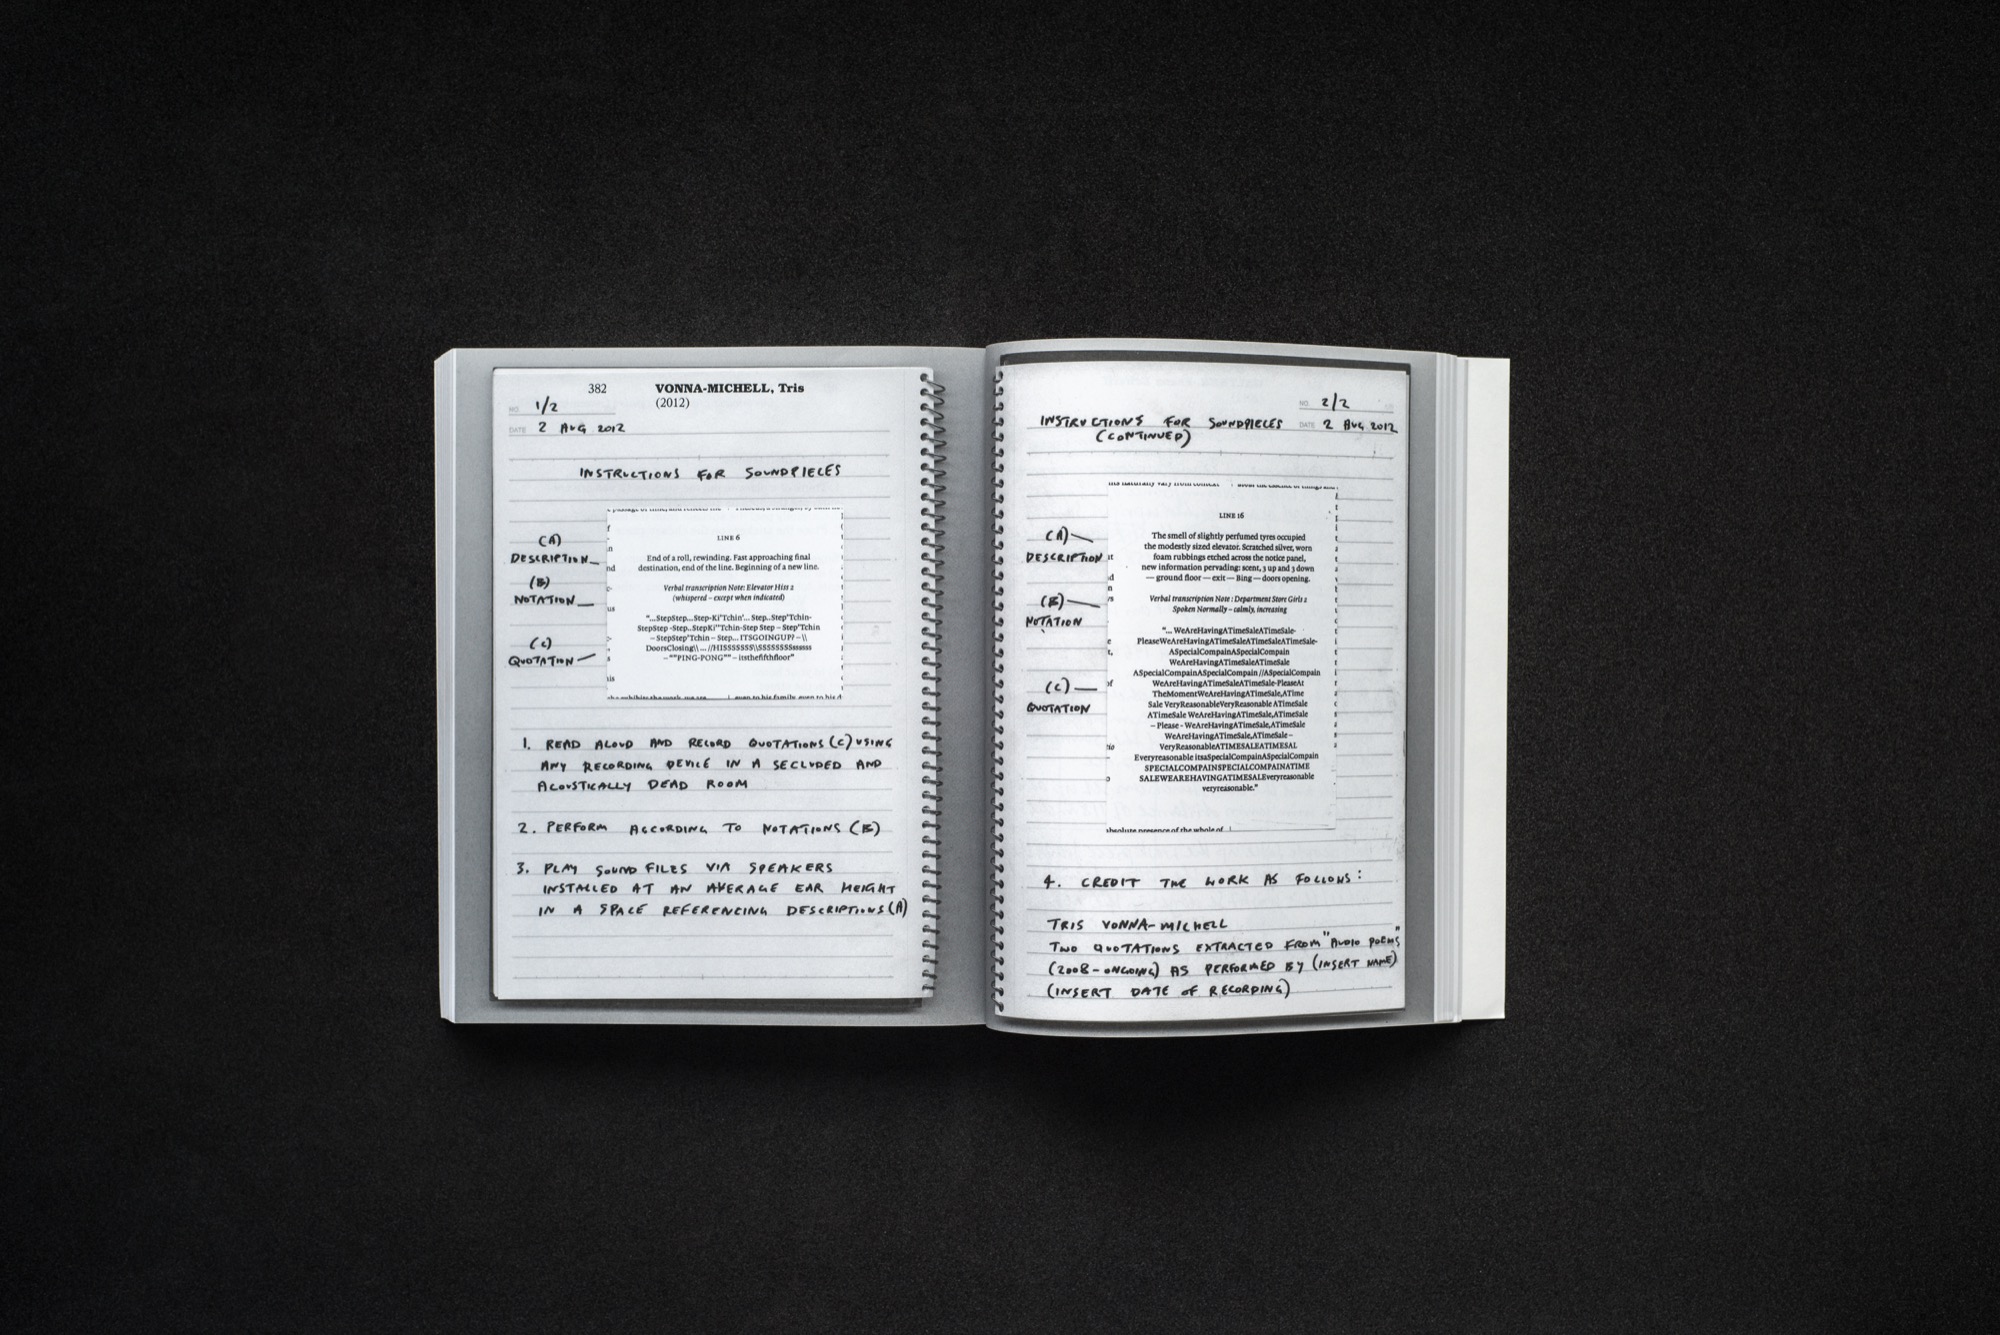 382
VONNA-MICHELL, Tris
(2012)
NO. 1/2
DATE 2 AUG 2012
INSTRUCTIONS FOR SOUNDPIECES
(A)
DESCRIPTION
(B)
NOTATION
(C)
QUOTATION
LINE 6
End of a roll, rewinding. Fast approaching final
destination, end of the line. Beginning of a new line.
Verbal transcription Note: Elevator Hiss 2
(whispered – except when indicated)
"...StepStep...Step-Ki'Tchin'... Step..Step'Tchin-
StepStep -Step..StepKi''Tchin-Step Step – Step'Tchin
– StepStep'Tchin – Step... ITSGOINGUP? – \\
DoorsClosing\\ ... //HISSSSSSS\\SSSSSSSSssssss
– ""PING-PONG"" – itsthefifthfloor"
1. READ ALOUD AND RECORD QUOTATIONS (C) USING
ANY RECORDING DEVICE IN A SECLUDED AND
ACOUSTICALLY DEAD ROOM
2. PERFORM ACCORDING TO NOTATIONS (B)
3. PLAY SOUND FILES VIA SPEAKERS
INSTALLED AT AN AVERAGE EAR HEIGHT
IN A SPACE REFERENCING DESCRIPTIONS (A)
NO. 2/2
INSTRUCTIONS FOR SOUNDPIECES DATE 2 AUG 2012
(CONTINUED)
(A)
DESCRIPTION
(B)
NOTATION
(C)
QUOTATION
LINE 16
The smell of slightly perfumed tyres occupied
the modestly sized elevator. Scratched silver, worn
foam rubbings etched across the notice panel,
new information pervading: scent, 3 up and 3 down
— ground floor — exit — Bing — doors opening.
Verbal transcription Note : Department Store Girls 2
Spoken Normally – calmly, increasing
"... WeAreHavingATimeSaleATimeSale-
PleaseWeAreHavingATimeSaleATimeSaleATimeSale-
ASpecialCompainASpecialCompain
WeAreHavingATimeSaleATimeSale
ASpecialCompainASpecialCompain //ASpecialCompain
WeAreHavingATimeSaleATimeSale-PleaseAt
TheMomentWeAreHavingATimeSale,ATime
Sale VeryReasonableVeryReasonable ATimeSale
ATimeSale WeAreHavingATimeSale,ATimeSale
– Please - WeAreHavingATimeSale,ATimeSale
WeAreHavingATimeSale,ATimeSale –
VeryReasonableATIMESALEATIMESAL
Everyreasonable itsaSpecialCompainASpecialCompain
SPECIALCOMPAINSPECIALCOMPAINATIME
SALEWEAREHAVINGATIMESALEveryreasonable
veryreasonable."
absolute presence of the whole of
4. CREDIT THE WORK AS FOLLOWS:
TRIS VONNA-MICHELL
TWO QUOTATIONS EXTRACTED FROM "AUDIO POEMS"
(2008-ONGOING) AS PERFORMED BY (INSERT NAME)
(INSERT DATE OF RECORDING)